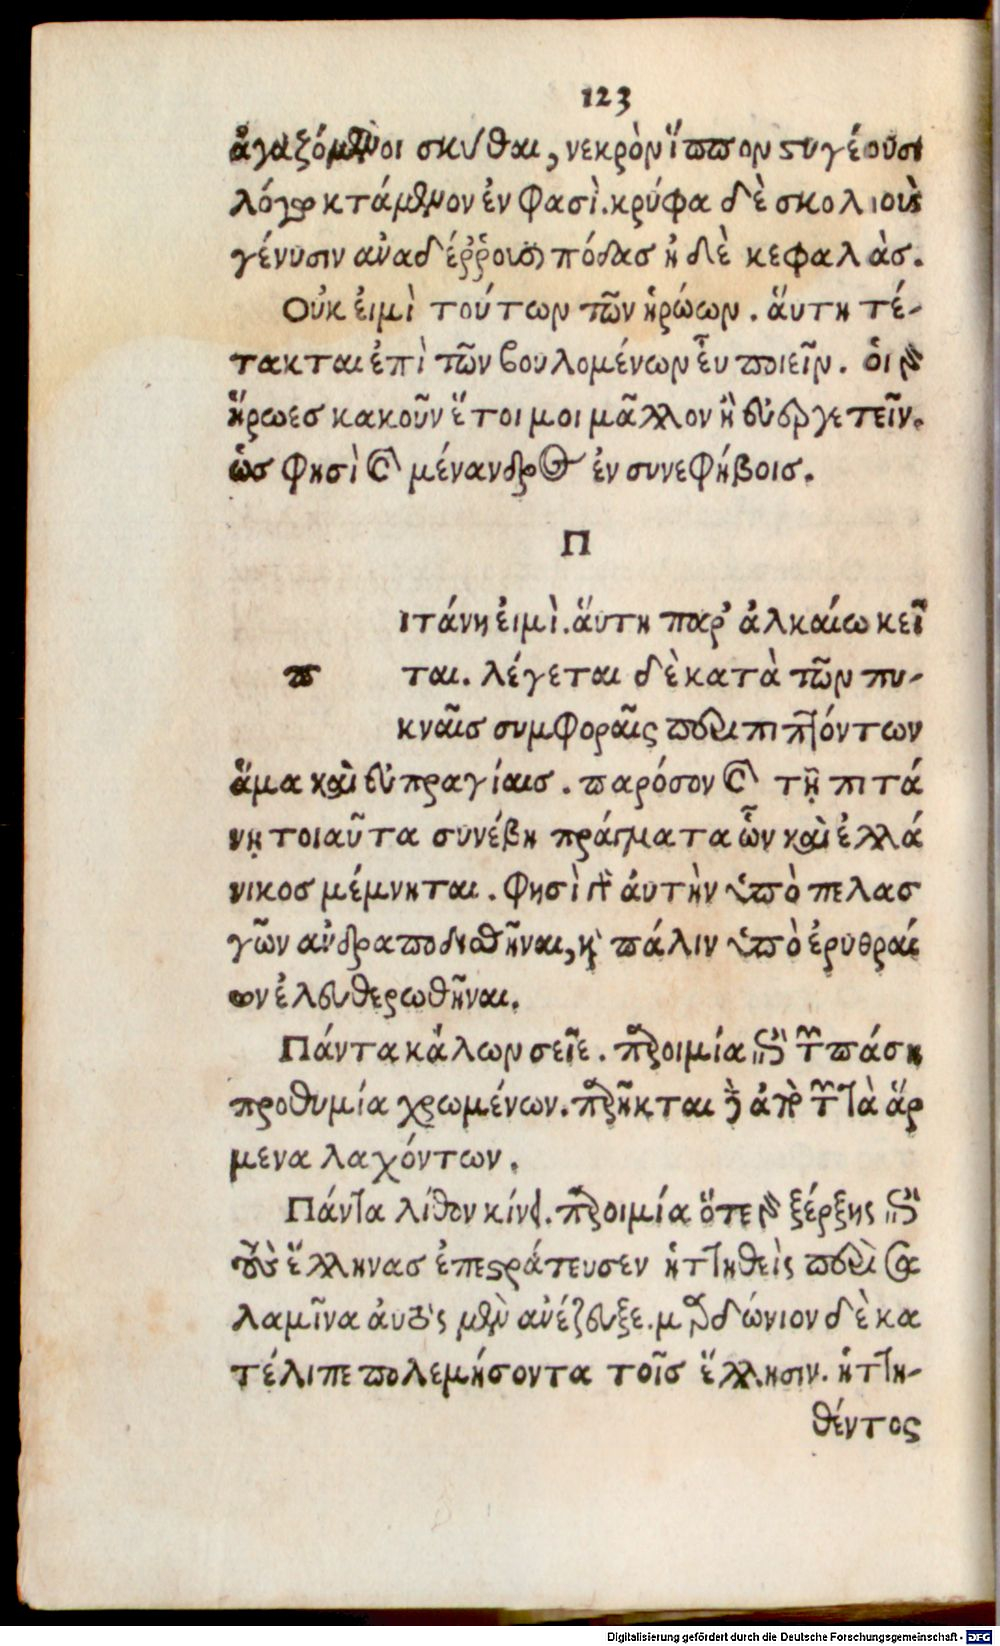 123
ἀγαζόμενοι σκύθαι, νεκρὸν ἵππον στυγέουσι
λόγῳ κτάμενον ἐν φασὶ. κρύφα δὲ σκολιοὺς
γένυσιν ἀναδέῤῥουσι πόδασ ἠδὲ κεφαλὰσ.
Οὐκ εἰμὶ τούτων τῶν ἡρώων. ἅυτη τέ-
τακται ἐπὶ τῶν βουλομένων ἐῦ ποιεῖν. ὁι γὰρ
ἥρωεσ κακοῦν ἕτοιμοι μᾶλλον ἢ ἐυεργετεῖν.
ὡσ φησὶ ὁ μένανδρος ἐν συνεφήβοισ.
Π
ιτάνη ἐιμὶ. ἅυτη παρ' ἀλκαίω κεῖ
π ται. λέγεται δὲ κατὰ τῶν πυ-
κναῖσ συμφοραῖς περιπιπτόντων
ἅμα καὶ ἐυπραγίαισ. παρόσον καὶ τῇ πιτά
νῃ τοιαῦτα συνέβη πράγματα ὧν καὶ ἑλλά
νικοσ μέμνηται. φησὶ γὰρ ἀυτὴν ὑπὸ πελασ
γῶν ἀνδραποδισθῆναι, καὶ πάλιν ὑπὸ ἐρυθραί
ων ἐλευθερωθῆναι.
Πάντα κάλων σεῖε. παροιμία ἐπὶ τῶν πάσῃ
προθυμία χρωμένων. παρῆκται δὲ ἀπὸ τῶν τὰ ἄρ
μενα λαχόντων.
Πάντα λίθον κίνει. παροιμία ὅτε γὰρ ξέρξης ἐπὶ
τοὺς ἕλληνασ ἐπεστράτευσεν ἡττηθεὶς περὶ σα
λαμῖνα ἀυτὸς μὲν ἀνέζευξε. μαρδώνιον δὲ κα
τέλιπε πολεμήσοντα τοῖσ ἕλλησιν. ἡττη-
θέντος
Digitalisierung gefördert durch die Deutsche Forschungsgemeinschaft - DFG